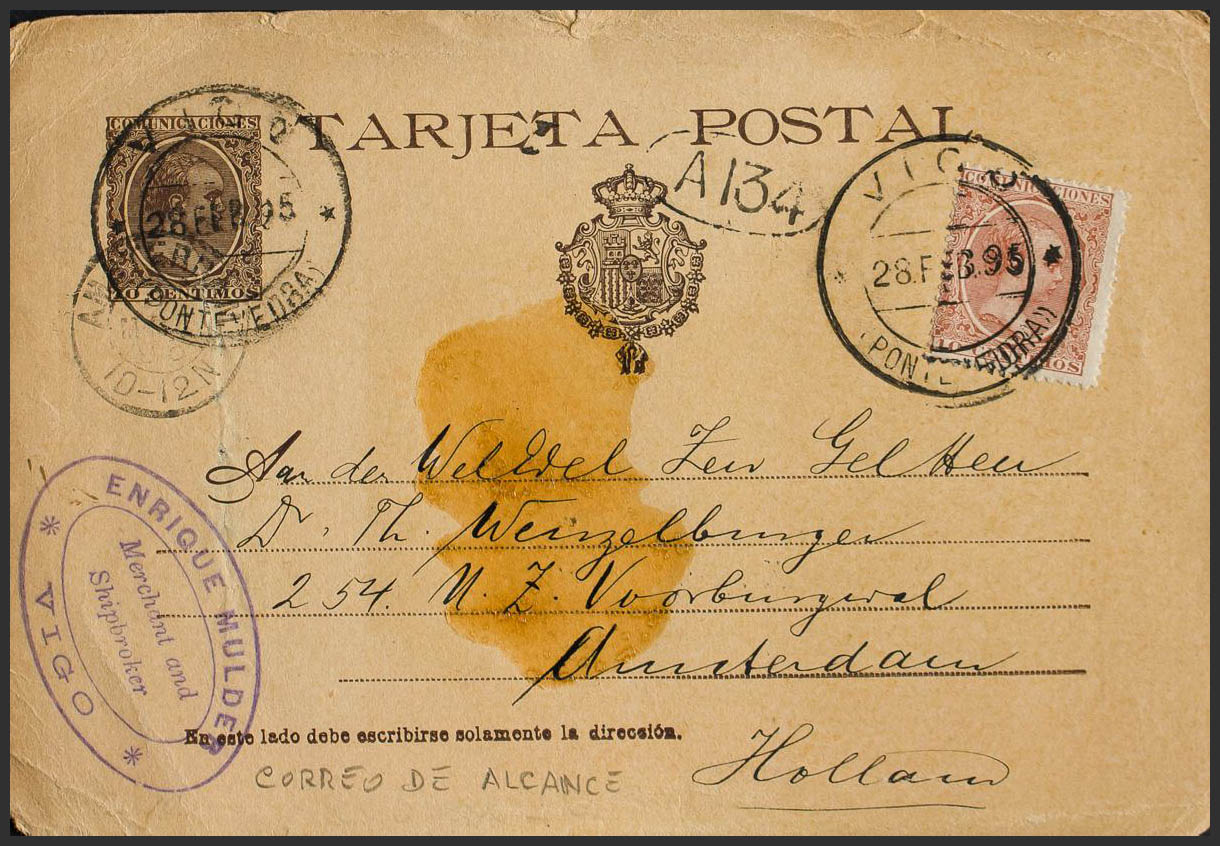 TARJETA POSTAL
COMUNICACIONES
10 CENTIMOS
VIGO
28.FEB.95
(PONTEVEDRA)
10-12N
A134
COMUNICACIONES
VIGO
28.FEB.95
(PONTEVEDRA)
Aan den WelEdel Zeer Gel Heer
Dr. Th. Wenzelburger
254. N. Z. Voorburgwal
Amsterdam
Holland
ENRIQUE MULDER
Merchant and
Shipbroker
VIGO
En este lado debe escribirse solamente la dirección.
CORREO DE ALCANCE